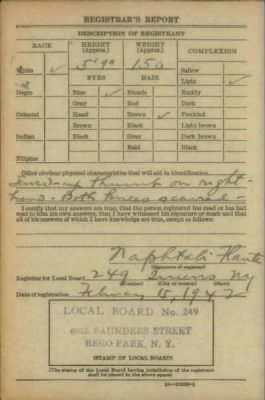 REGISTRAR'S REPORT
DESCRIPTION OF REGISTRANT
RACE HEIGHT (Approx.) WEIGHT (Approx.) COMPLEXION
White ✓ 5'9" 150 Sallow
EYES HAIR Light ✓
Negro Blue ✓ Blonde Ruddy
Gray Red Dark
Oriental Hazel Brown ✓ Freckled
Brown Black Light brown
Indian Black Gray Dark brown
Bald Black
Filipino
Other obvious physical characteristics that will aid in identification
thumb on right
hand. Both knees scarred
I certify that my answers are true; that the person registered has read or has had read to him his own answers; that I have witnessed his signature or mark and that all of his answers of which I have knowledge are true, except as follows:
Naphtali
(Signature of registrar)
Registrar for Local Board 249 Queens NY
(Number) (City or county) (State)
Date of registration February 15, 1942
LOCAL BOARD No. 249
SAUNDERS STREET
REGO PARK, N. Y.
(STAMP OF LOCAL BOARD)
(The stamp of the Local Board having jurisdiction of the registrant shall be placed in the above space)